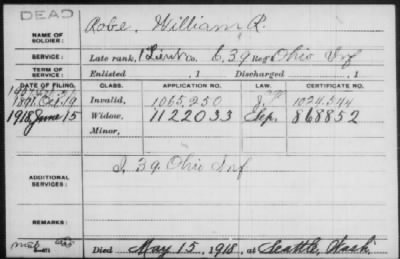 DEAD
NAME OF SOLDIER: Robe, William R.
SERVICE: Late rank, 1 Lieut Co. C, 39 Reg't Ohio Inf
TERM OF SERVICE: Enlisted , 1 Discharged , 1
DATE OF FILING. CLASS. APPLICATION NO. LAW. CERTIFICATE NO.
1891 Oct 19 Invalid, 1065,250 1024544
1918 June 15 Widow, 1122033 Sep. 868852
Minor,
ADDITIONAL SERVICES: I. 39 Ohio Inf
REMARKS:
Died May 15, 1918, at Seattle, Wash.